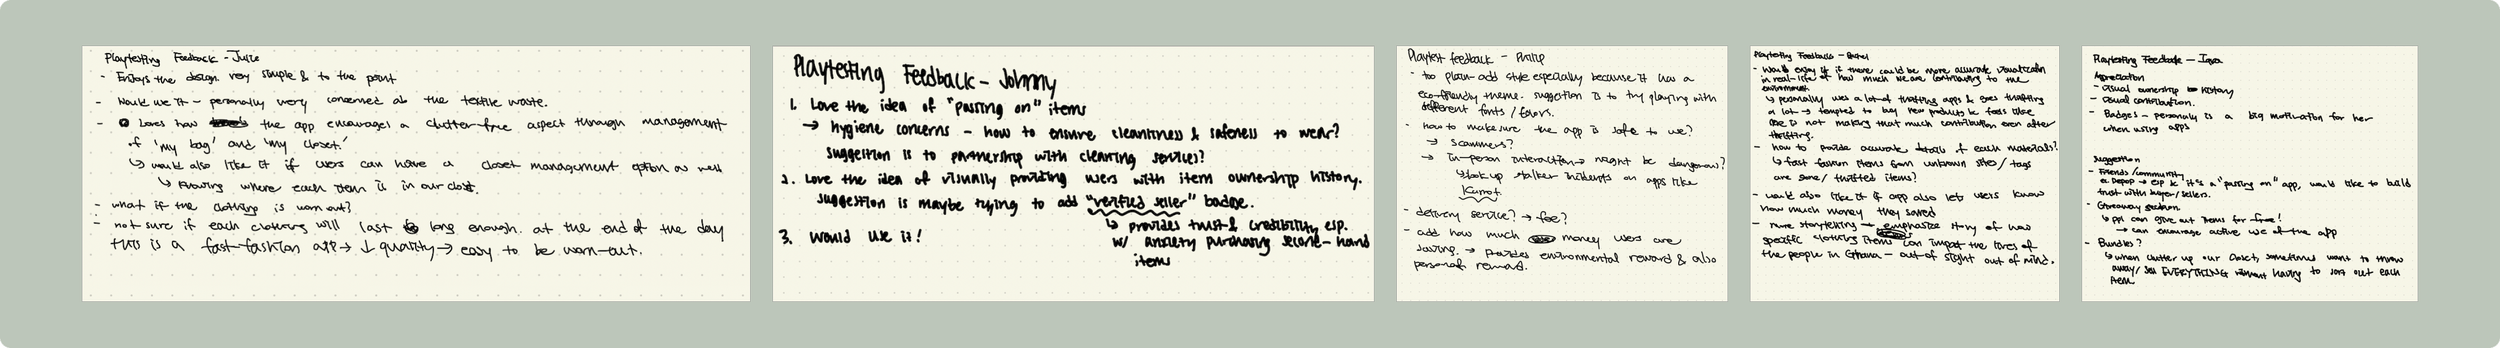 Playtesting Feedback - Julie
- Enjoys the design. very simple & to the point
- Would use it - personally very concerned ab the textile waste.
- loves how the app encourages a clutter-free aspect through management
of 'my bag' and 'my closet.'
↳ would also like it if users can have a closet management option as well
↳ knowing where each item is in our closet.
- what if the clothing is worn out?
- not sure if each clothing will last long enough. at the end of the day
this is a fast-fashion app → ↓ quality → easy to be worn-out.
Playtesting Feedback - Johnny
1. Love the idea of "passing on" items
→ hygiene concerns - how to ensure cleanliness & safeness to wear?
suggestion is to partnership with cleaning services?
2. Love the idea of visually providing users with item ownership history.
suggestion is maybe trying to add "verified seller" badge.
↳ provides trust & credibility esp.
w/ anxiety purchasing second-hand
items
3. Would use it!
Playtest feedback - Philip
- too plain-add style especially because it has a
eco-friendly theme. suggestion is to try playing with
different fonts /
- how to make sure the app is safe to use?
→ scammers?
→ in-person interaction → might be dangerous?
↳ look up stalker incidents on apps like
Karrot
- delivery service? → fee?
- add how much money users are
saving. → provides environmental reward & also
personal reward.
Playtesting Feedback - Rachel
- Would enjoy it if there could be more accurate visualization
in real-life of how much we are contributing to the
environment.
↳ personally uses a lot of thrifting apps & goes thrifting
a lot → tempted to buy new products bc feels like
she is not making that much contribution even after
thrifting.
- how to provide accurate details of each materials?
↳ fast fashion items from unknown sites/ tags
are gone/ thrifted items?
- would also like it if app also lets users know
how much money they saved
- more storytelling - emphasize story of how
specific clothing items can impact the lives of
the people in Ghana - out of sight out of mind.
Playtesting Feedback -
Appreciation
- visual ownership history
- visual contribution.
- Badges - personally is a big motivation for her
when using apps
Suggestion
- Friends /community
ex. Depop → esp bc it's a "passing on" app, would like to build
trust with buyer/ sellers.
- Giveaway section
↳ ppl can give out items for free!
→ can encourage active use of the app
- Bundles?
↳ when clutter up our closet, sometimes want to throw
away/ sell EVERYTHING without having to sort out each
item.